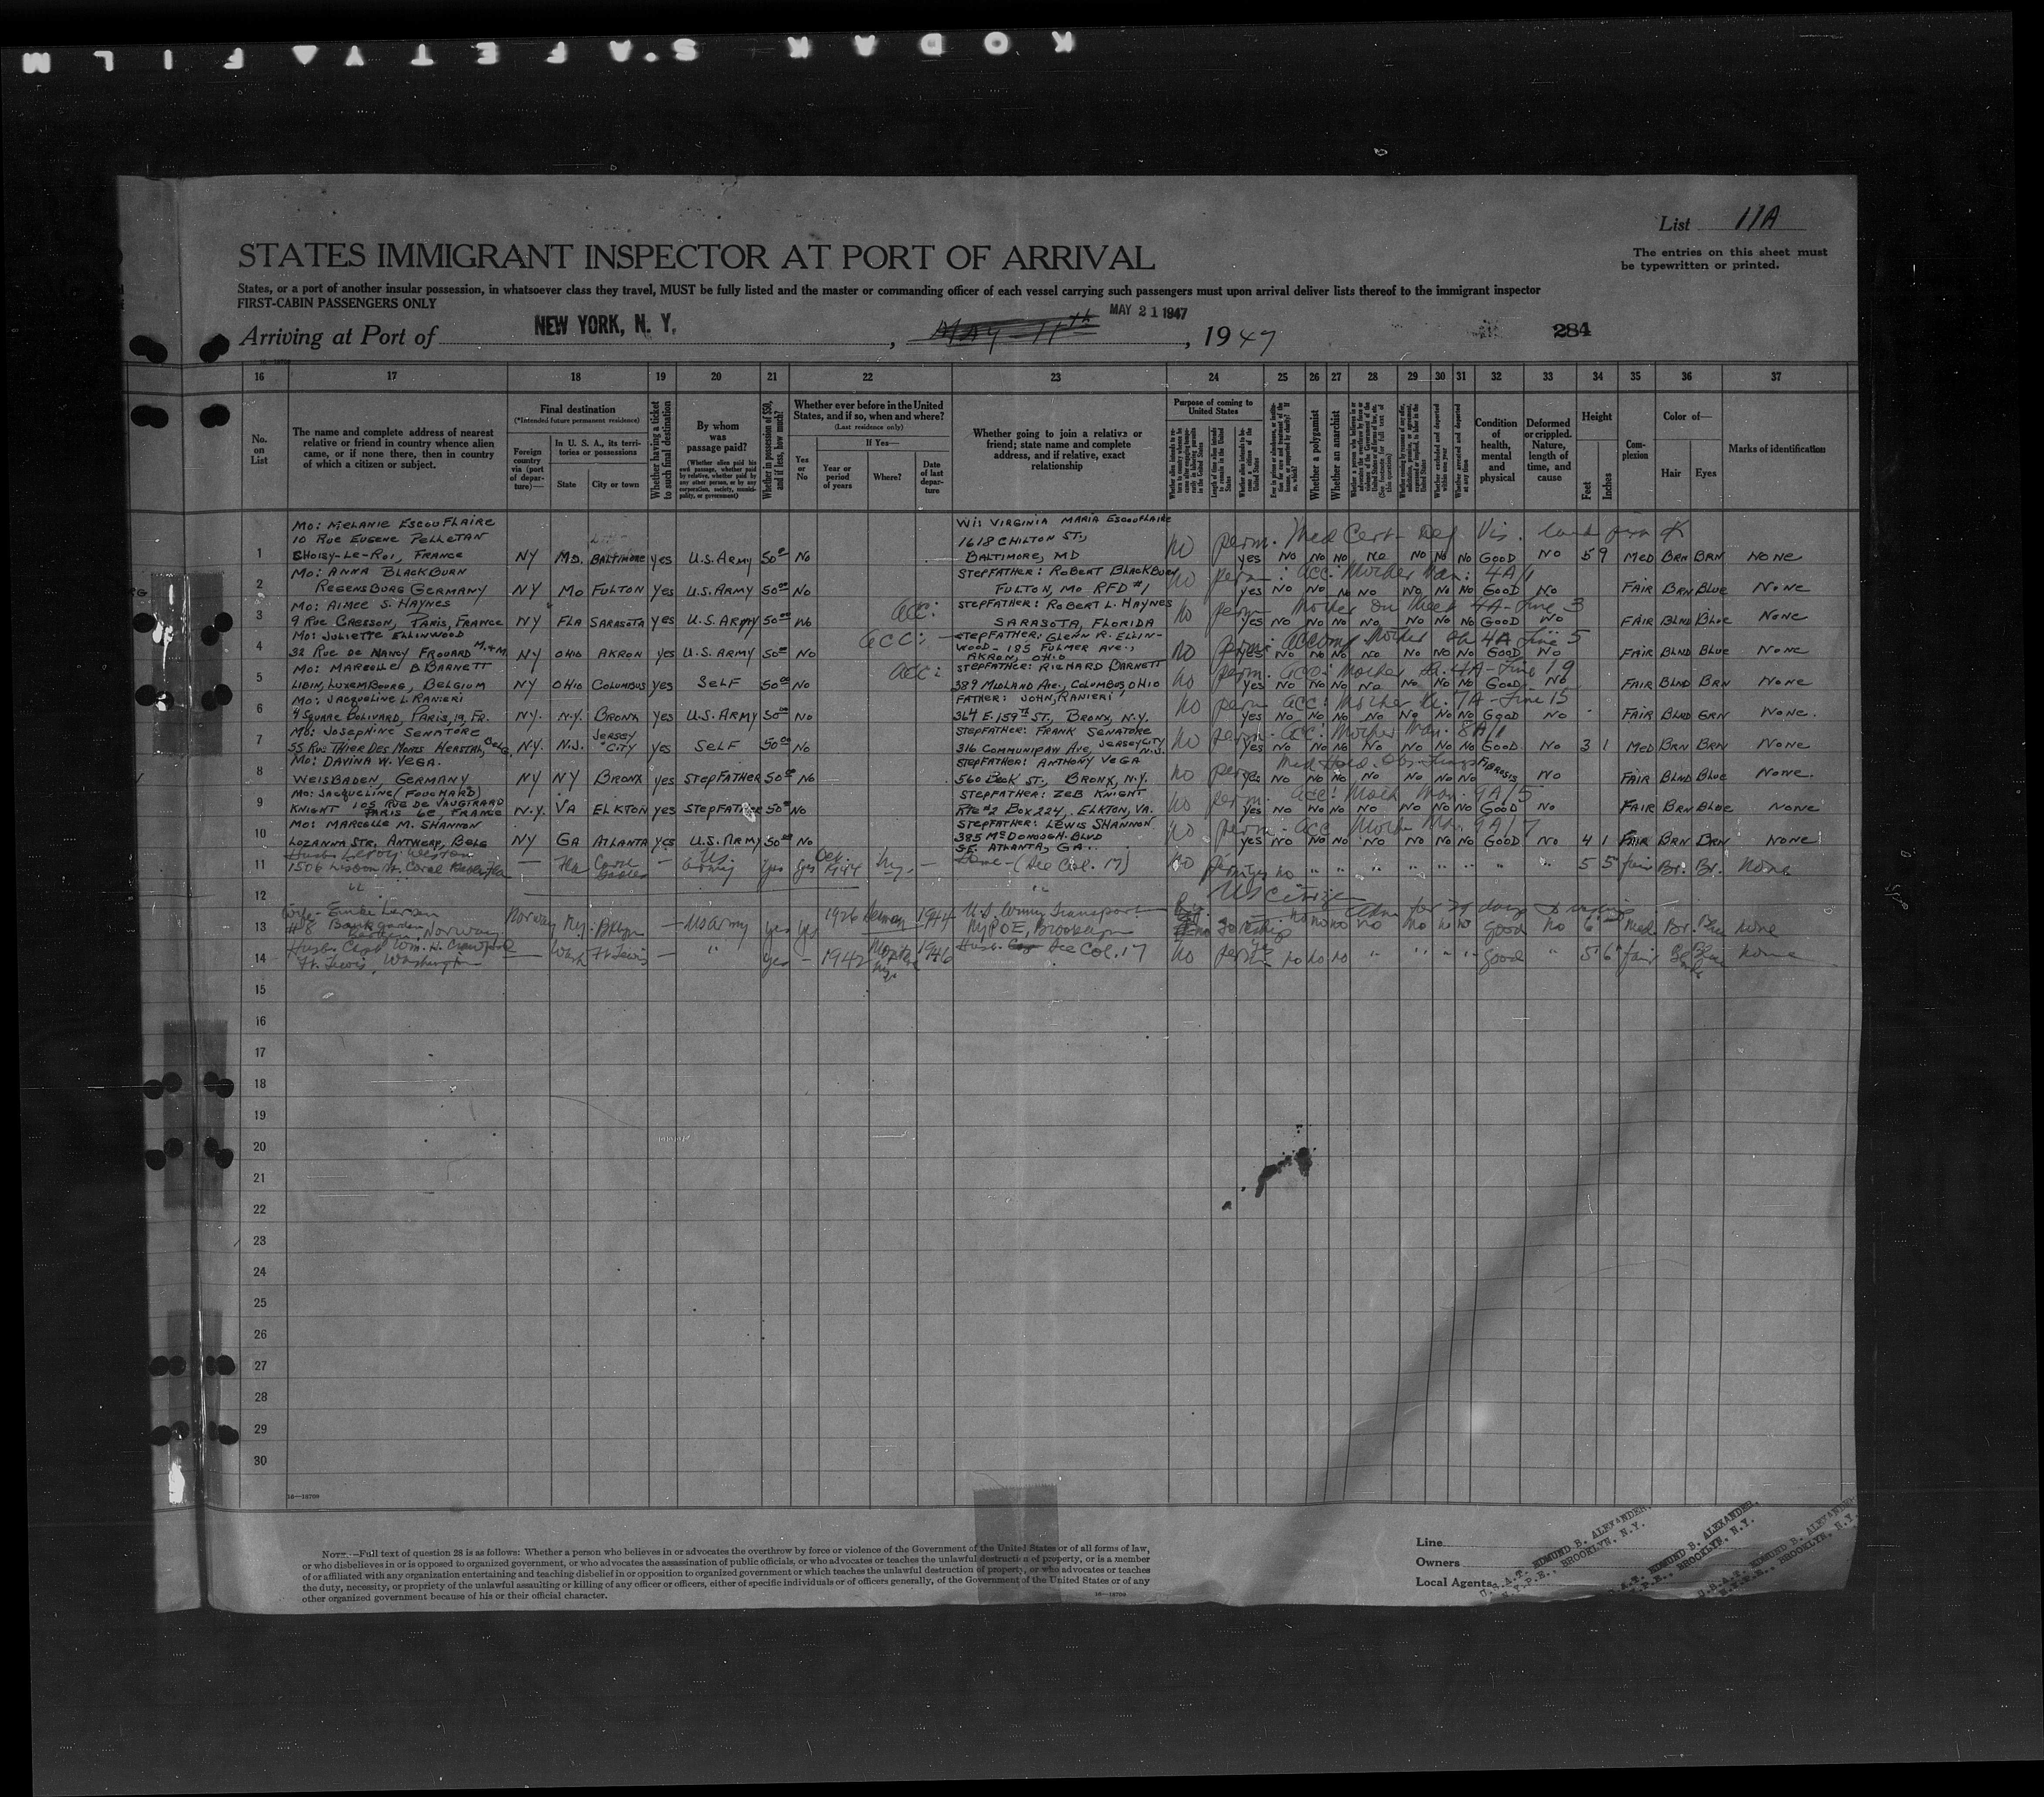 KODAK SAFETY FILM
List 11A
The entries on this sheet must
be typewritten or printed.
STATES IMMIGRANT INSPECTOR AT PORT OF ARRIVAL
States, or a port of another insular possession, in whatsoever class they travel, MUST be fully listed and the master or commanding officer of each vessel carrying such passengers must upon arrival deliver lists thereof to the immigrant inspector
FIRST-CABIN PASSENGERS ONLY
Arriving at Port of NEW YORK, N. Y. , May 11th MAY 21 1947 , 1947 284
16 17 18 19 20 21 22 23 24 25 26 27 28 29 30 31 32 33 34 35 36 37
No. on List
The name and complete address of nearest relative or friend in country whence alien came, or if none there, then in country of which a citizen or subject.
Final destination
(*Intended future permanent residence)
Foreign country via (port of departure)—
In U. S. A., its territories or possessions
State City or town
Whether having a ticket to such final destination
By whom was passage paid?
(Whether alien paid his own passage, whether paid by relative, whether paid by any other person, or by any corporation, society, municipality, or government)
Whether in possession of $50, and if less, how much?
Whether ever before in the United States, and if so, when and where?
(Last residence only)
Yes or No
If Yes—
Year or period of years
Where?
Date of last departure
Whether going to join a relative or friend; state name and complete address, and if relative, exact relationship
Purpose of coming to United States
Whether a polygamist
Whether an anarchist
Condition of health, mental and physical
Deformed or crippled. Nature, length of time, and cause
Height
Feet Inches
Complexion
Color of—
Hair Eyes
Marks of identification
Mo: MELANIE ESCOUFLAIRE WI: VIRGINIA MARIA ESCOUFLAIRE
10 RUE EUGENE PELLETAN 1618 CHILTON ST.,
1 CHOISY-LE-ROI, FRANCE NY MD. BALTIMORE YES U.S. ARMY 50 NO BALTIMORE, MD No perm. Med Cert Def Vis. YES NO NO NO NO NO NO NO GOOD NO 5 9 MED BRN BRN NONE
MO: ANNA BLACKBURN STEPFATHER: ROBERT BLACKBURN
2 REGENSBURG GERMANY NY MO FULTON YES U.S. ARMY 50 NO FULTON, MO RFD #1 No perm: acc: Mother Man: 4A/1 YES NO NO NO NO NO NO NO GOOD NO FAIR BRN BLUE NONE
MO: AIMEE S. HAYNES STEPFATHER: ROBERT L. HAYNES
3 PARIS, FRANCE NY FLA SARASOTA YES U.S. ARMY 50 NO acc: SARASOTA, FLORIDA No perm Mother 4A-Line 3 YES NO NO NO NO NO NO NO GOOD NO FAIR BLND BLUE NONE
MO: JULIETTE ELLINWOOD STEPFATHER: GLENN R. ELLIN-
4 32 RUE DE NANCY FROUARD M.+M. NY OHIO AKRON YES U.S. ARMY 50 NO acc: WOOD - 185 FULMER AVE., AKRON, OHIO No perm: accomp mother 4A Line 5 YES NO NO NO NO NO NO NO GOOD NO FAIR BLND BLUE NONE
MO: MARCELLE B BARNETT STEPFATHER: RICHARD BARNETT
5 LIBIN, LUXEMBOURG, BELGIUM NY OHIO COLUMBUS YES SELF 50 NO acc: 389 MIDLAND AVE., COLUMBUS OHIO No perm. acc: Mother 4A-Line 19 YES NO NO NO NO NO NO NO GOOD NO FAIR BLND BRN NONE
MO: JACQUELINE L RANIERI FATHER: JOHN RANIERI
6 4 SQUARE BOLIVARD, PARIS, 19, FR. N.Y. N.Y. BRONX YES U.S. ARMY 50 NO 364 E. 159TH ST., BRONX, N.Y. No perm acc: Mother 7A-Line 15 YES NO NO NO NO NO NO NO GOOD NO FAIR BLND GRN NONE.
MO: JOSEPHINE SENATORE STEPFATHER: FRANK SENATORE
7 55 RUE THIER DES MONTS HERSTAL, BELG. N.Y. N.J. JERSEY CITY YES SELF 50 NO 316 COMMUNIPAW AVE, JERSEY CITY N.J. No perm. acc: Mother Man. 8A/1 YES NO NO NO NO NO NO NO GOOD NO 3 1 MED BRN BRN NONE
MO: DAVINA W. VEGA. STEPFATHER: ANTHONY VEGA
8 WEISBADEN, GERMANY NY NY BRONX YES STEPFATHER 50 NO 560 BECK ST., BRONX, N.Y. No perm Med Hold. Obs. Lungs FIBROSIS YES NO NO NO NO NO NO NO NO FAIR BLND BLUE NONE.
MO: JACQUELINE (FOUCHARD) STEPFATHER: ZEB KNIGHT
9 KNIGHT 105 RUE DE VAUGIRARD PARIS 6E, FRANCE N.Y. VA ELKTON YES STEPFATHER 50 NO RTE #2 BOX 224, ELKTON, VA. No perm. acc: Moth Man. 9A/5 YES NO NO NO NO NO NO NO GOOD NO FAIR BRN BLUE NONE
MO: MARCELLE M. SHANNON STEPFATHER: LEWIS SHANNON
10 LOZANNA STR, ANTWERP, BELG NY GA ATLANTA YES U.S. ARMY 50 NO 385 McDONOUGH BLVD SE. ATLANTA, GA. No perm. acc Mother Man. 9A/7 YES NO NO NO NO NO NO NO GOOD NO 4 1 FAIR BRN BRN NONE
Husb: Leroy Weston
11 1506 Lisbon St. Coral Gables Fla — Fla Coral Gables — US Army Yes yes Oct 1944 N.Y. — (See Col. 17) No perm yes no " " " " " " " 5 5 fair Br. Br. None
12 " " US Citizen
Wife - Larsen
13 #8 Bergen, Norway Norway N.Y. Bklyn — US Army yes yes 1926 1944 U.S. Army Transport NYPOE, Brooklyn no no no no no no no good no 6 med. Br. Blue none
Husb: Capt Wm. H. Crawford
14 Ft. Lewis, Washington — Wash Ft Lewis — " yes — 1942 1946 Husb. See Col. 17 No perm yes no no no " " " " good " 5 6 fair none
15
16
17
18
19
20
21
22
23
24
25
26
27
28
29
30
16—18709
NOTE.—Full text of question 28 is as follows: Whether a person who believes in or advocates the overthrow by force or violence of the Government of the United States or of all forms of law,
or who disbelieves in or is opposed to organized government, or who advocates the assassination of public officials, or who advocates or teaches the unlawful destruction of property, or is a member
of or affiliated with any organization entertaining and teaching disbelief in or opposition to organized government or which teaches the unlawful destruction of property, or who advocates or teaches
the duty, necessity, or propriety of the unlawful assaulting or killing of any officer or officers, either of specific individuals or of officers generally, of the Government of the United States or of any
other organized government because of his or their official character.
16—18709
Line
Owners
Local Agents
U.S.A.T. EDMUND B. ALEXANDER.
N.Y.P.E., BROOKLYN, N.Y.
U.S.A.T. EDMUND B. ALEXANDER.
N.Y.P.E., BROOKLYN, N.Y.
U.S.A.T. EDMUND B. ALEXANDER
N.Y.P.E., BROOKLYN, N.Y.